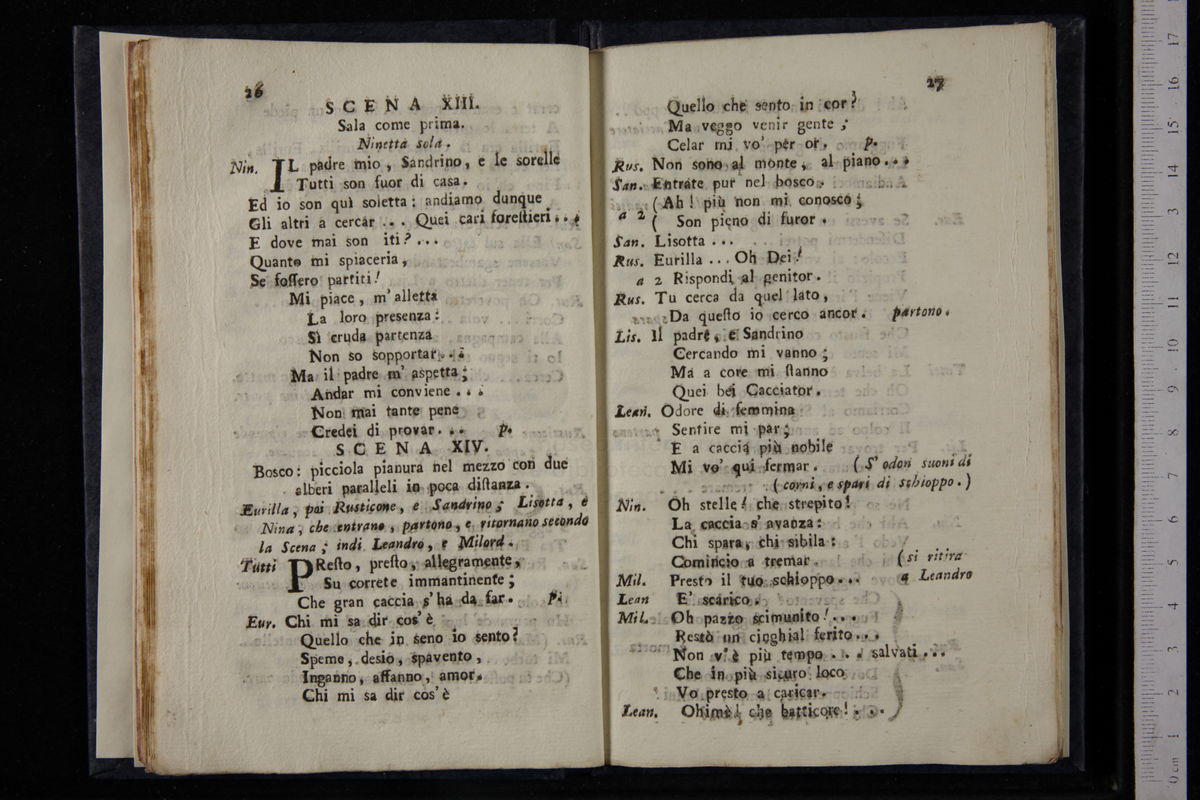 26
SCENA XIII.
Sala come prima.
Ninetta sola.
Nin. IL padre mio, Sandrino, e le sorelle
Tutti son fuor di casa.
Ed io son quì soletta: andiamo dunque
Gli altri a cercar ... Quei cari forestieri...
E dove mai son iti? ...
Quanto mi spiaceria,
Se fossero partiti!
Mi piace, m'alletta
La loro presenza:
Sì cruda partenza
Non so sopportar...
Ma il padre m'aspetta;
Andar mi conviene...
Non mai tante pene
Credei di provar... p.
SCENA XIV.
Bosco: picciola pianura nel mezzo con due
alberi paralleli in poca distanza.
Eurilla, poi Rusticone, e Sandrino; Lisotta, e
Nina, che entrano, partono, e ritornano secondo
la Scena; indi Leandro, e Milord.
Tutti PResto, presto, allegramente,
Su correte immantinente;
Che gran caccia s'ha da far. p.
Eur. Chi mi sa dir cos'è
Quello che in seno io sento?
Speme, desio, spavento,
Inganno, affanno, amor.
Chi mi sa dir cos'è
27
Quello che sento in cor?
Ma veggo venir gente;
Celar mi vo' per or. p.
Rus. Non sono al monte, al piano...
San. Entrate pur nel bosco.
a 2 ( Ah! più non mi conosco;
( Son pieno di furor.
San. Lisotta ...
Rus. Eurilla ... Oh Dei!
a 2 Rispondi al genitor.
Rus. Tu cerca da quel lato,
Da questo io cerco ancor. partono.
Lis. Il padre, e Sandrino
Cercando mi vanno;
Ma a core mi stanno
Quei bei Cacciator.
Lean. Odore di femmina
Sentire mi par;
E a caccia più nobile
Mi vo' qui fermar. ( S'odon suoni di
( corni, e spari di schioppo.)
Nin. Oh stelle! che strepito!
La caccia s'avanza:
Chi spara, chi sibila:
Comincio a tremar. ( si ritira
Mil. Presto il tuo schioppo... a Leandro
Lean E' scarico.
Mil. Oh pazzo scimunito!...
Restò un cinghial ferito...
Non v'è più tempo ... salvati...
Che in più sicuro loco
Vo presto a caricar.
Lean. Ohimè! che batticore!...